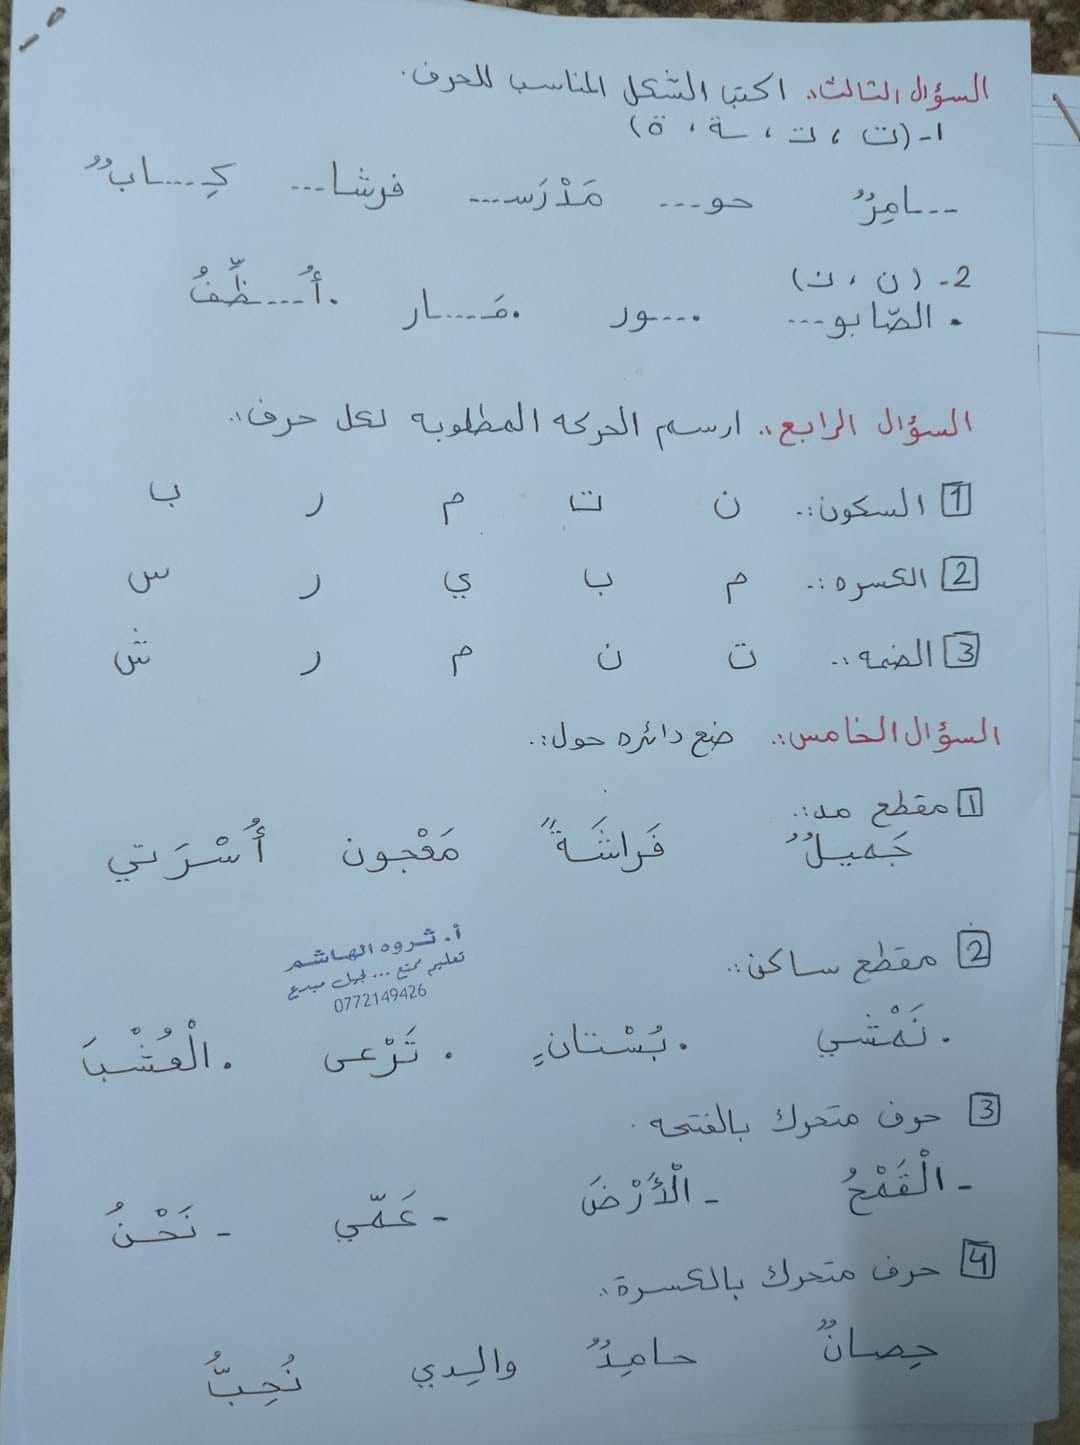 السؤال الثالث:. اكتب الشكل المناسب للحرف.
1- (ت ، تـ ، ـة ، ة)
...ـامِرٌ حو... مَدْرَسـ... فرشا... كِـ...ـابٌ
2- (ن ، نـ)
. الصّابو... . ...ـور . مَـ...ـار . أُ...ـظِّفُ
السؤال الرابع:. ارسم الحركه المطلوبه لكل حرف:.
1 السكون:. ن ت م ر ب
2 الكسره:. م ب ي ر س
3 الضمه:. ت ن م ر ش
السؤال الخامس:. ضع دائره حول:.
1 مقطع مد:.
جَميلٌ فَراشَةً مَعْجون أُسْرَتي
أ. ثروه الهاشم
تعليم ممتع ... لجيل مبدع
0772149426
2 مقطع ساكن:.
. نَمْشي . بُسْتانٍ . تَرْعى . الْعُشْبَ
3 حرف متحرك بالفتحه.
- الْقَمْحُ - الْأَرْضَ - عَمّي - نَحْنُ
4 حرف متحرك بالكسرة:.
حِصانٌ حامِدٌ والِدي نُحِبُّ